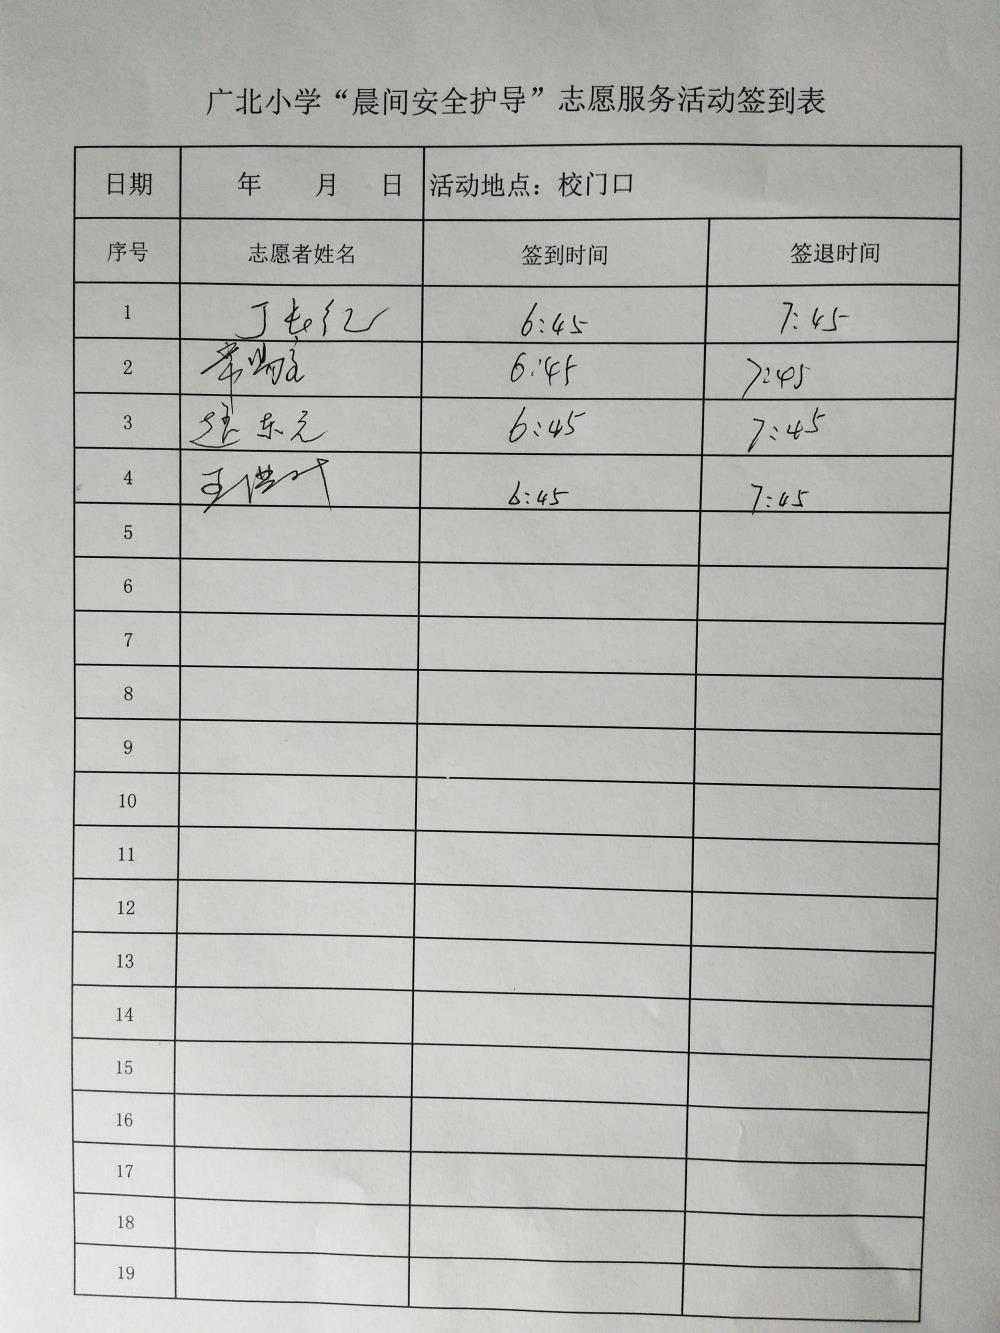 广北小学“晨间安全护导”志愿服务活动签到表
日期 年 月 日 活动地点：校门口
序号 志愿者姓名 签到时间 签退时间
1 丁长红 6:45 7:45
2 6:45 7:45
3 东元 6:45 7:45
4 王 6:45 7:45
5
6
7
8
9
10
11
12
13
14
15
16
17
18
19